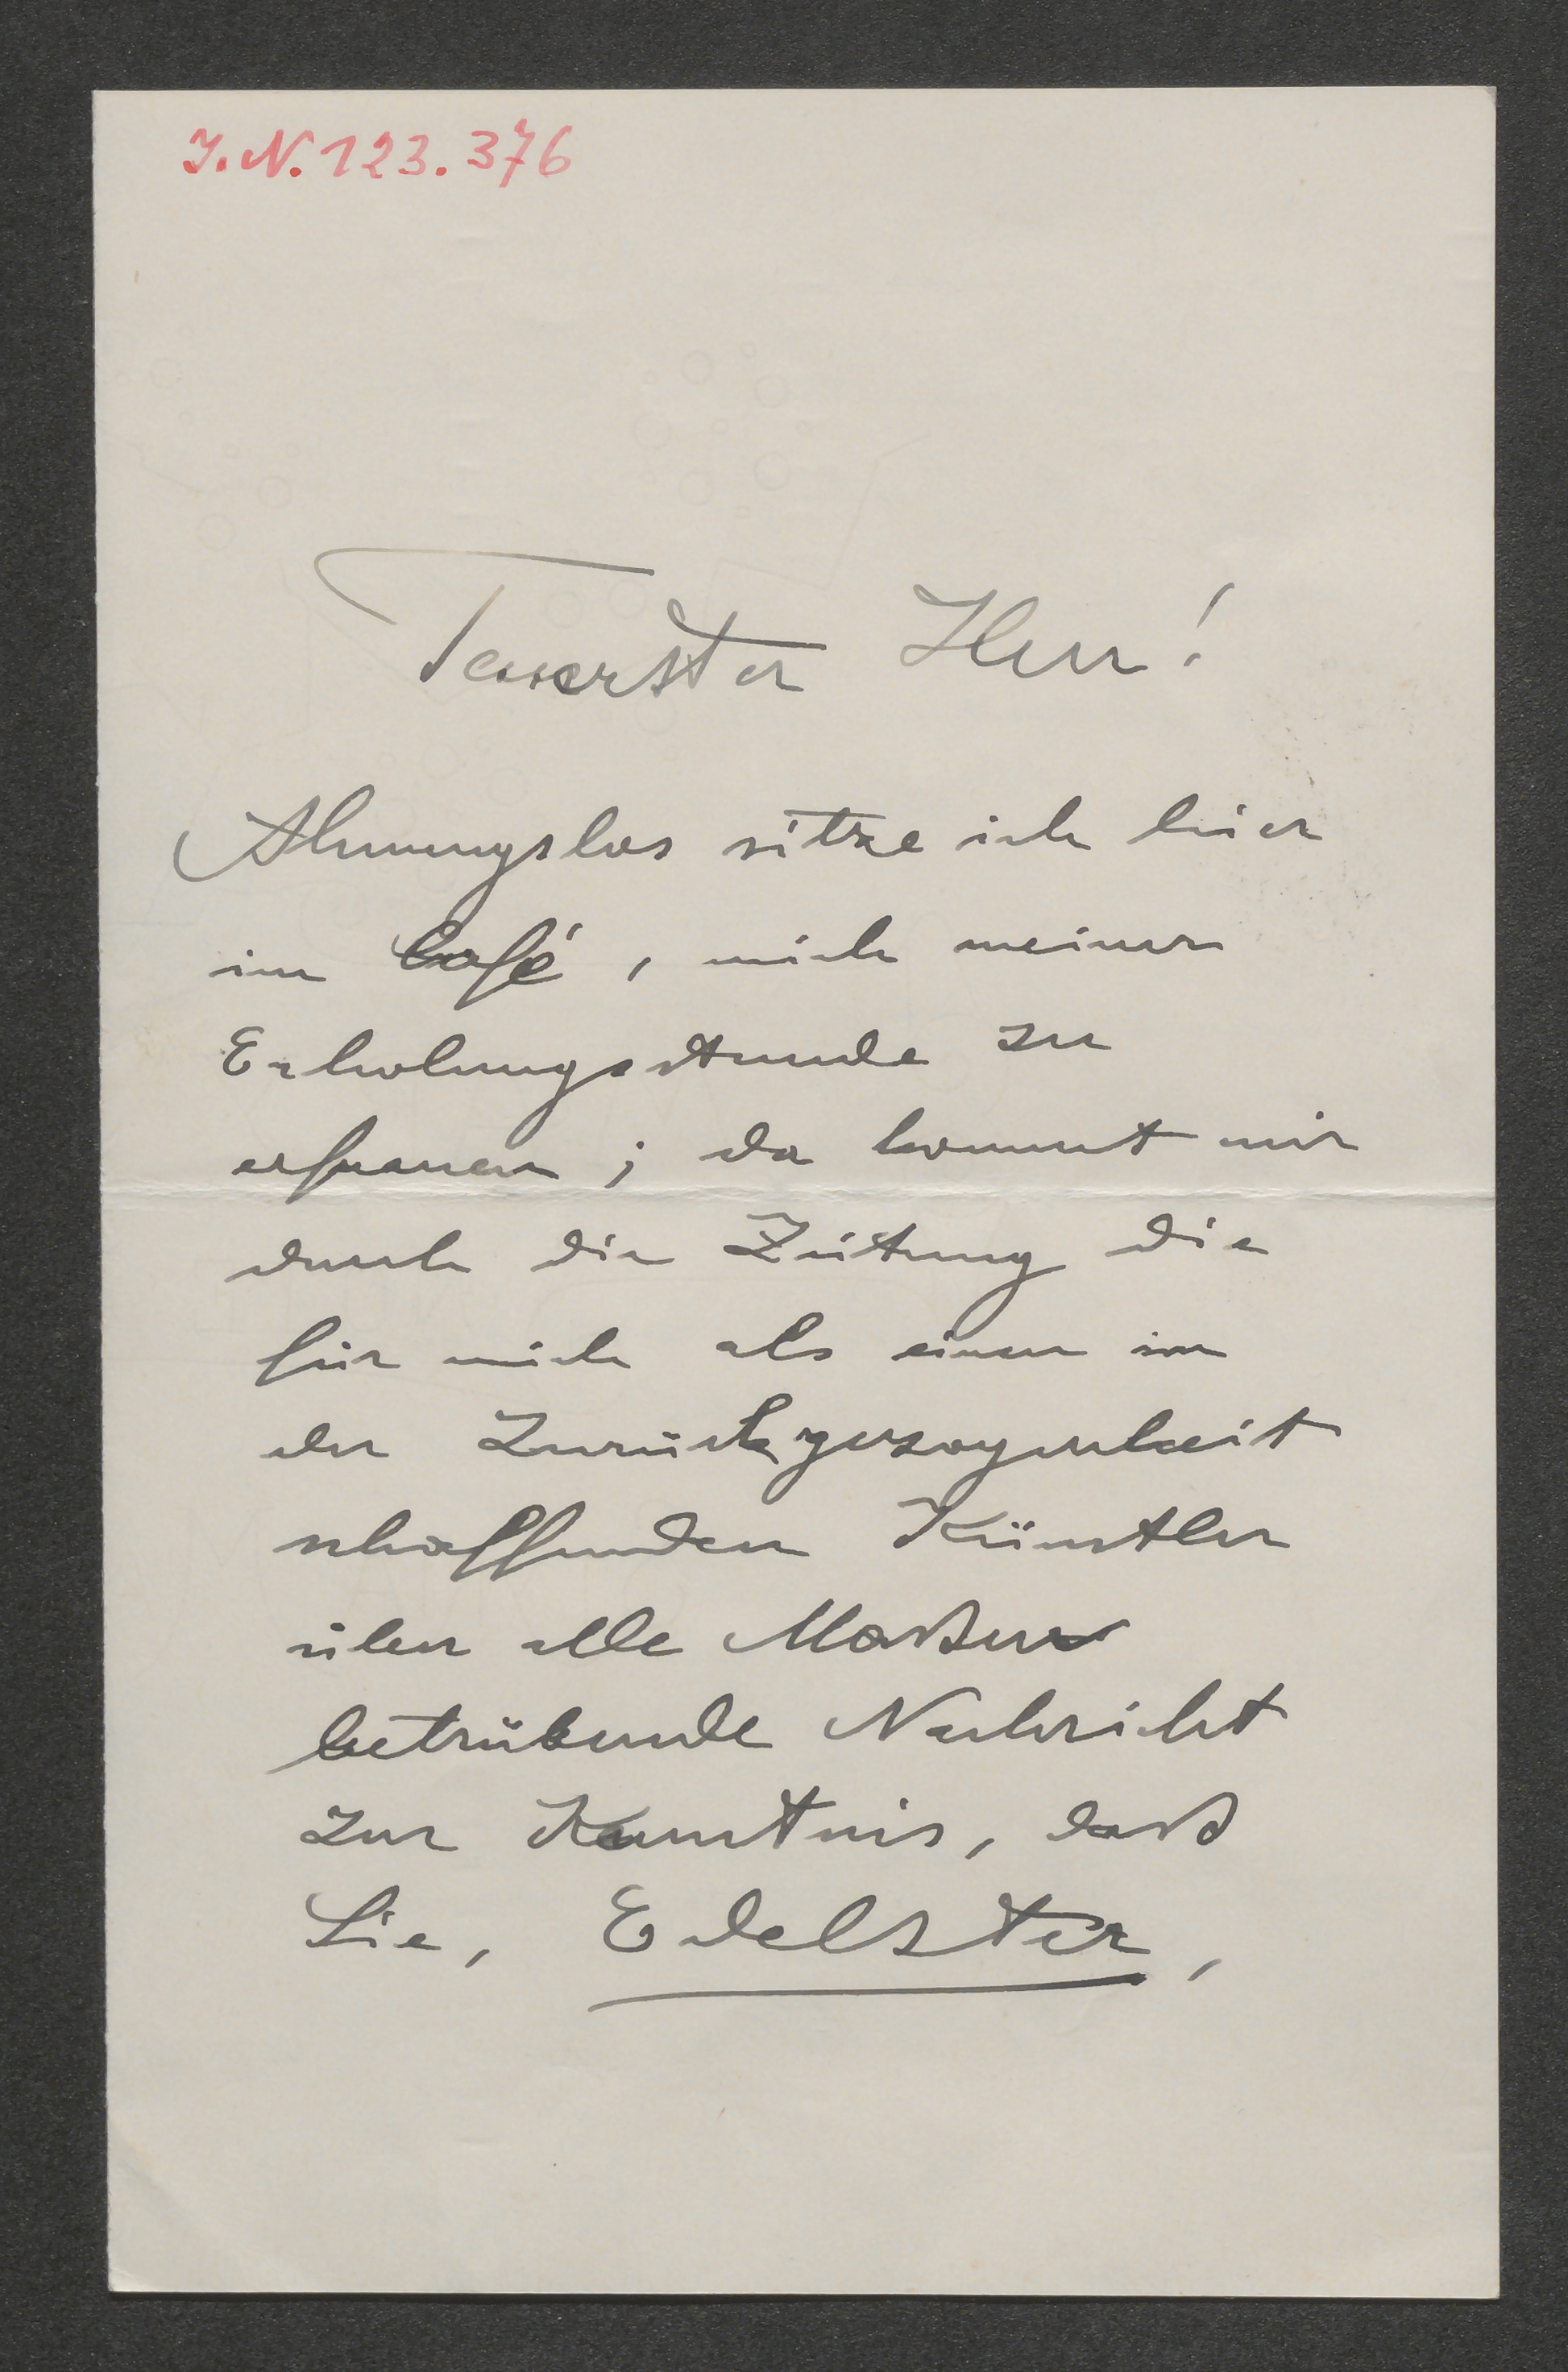 J.N. 123.376
Teuerster Herr!
Ahnungslos sitze ich hier
im Café, mich meiner
Erholungsstunde zu
erfreuen; da kommt mir
durch die Zeitung die
für mich als einen in
der Zurückgezogenheit
schaffenden Künstler
über alle Maßen
betrübende Nachricht
zur Kenntnis, daß
Sie, Edelster,